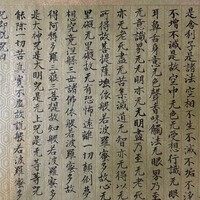 是舍利子是諸法空相不生不滅不垢不
不增不減是故空中无色无受想行識无眼
耳鼻舌身意无色聲香味觸法无眼界乃至
无意識界无无明亦无无明盡乃至无老死
亦无老死盡无苦集滅道无智亦无得以无
所得故菩提薩埵依般若波羅蜜多故心无
罣礙无罣礙故无有恐怖遠離一切顛倒夢
想究竟涅槃三世諸佛依般若波羅蜜多故
得阿耨多羅三藐三菩提故知般若波羅蜜多
是大神咒是大明咒是无上咒是无等等咒
能除一切苦真實不虛故說般若波羅蜜多
咒即說咒曰